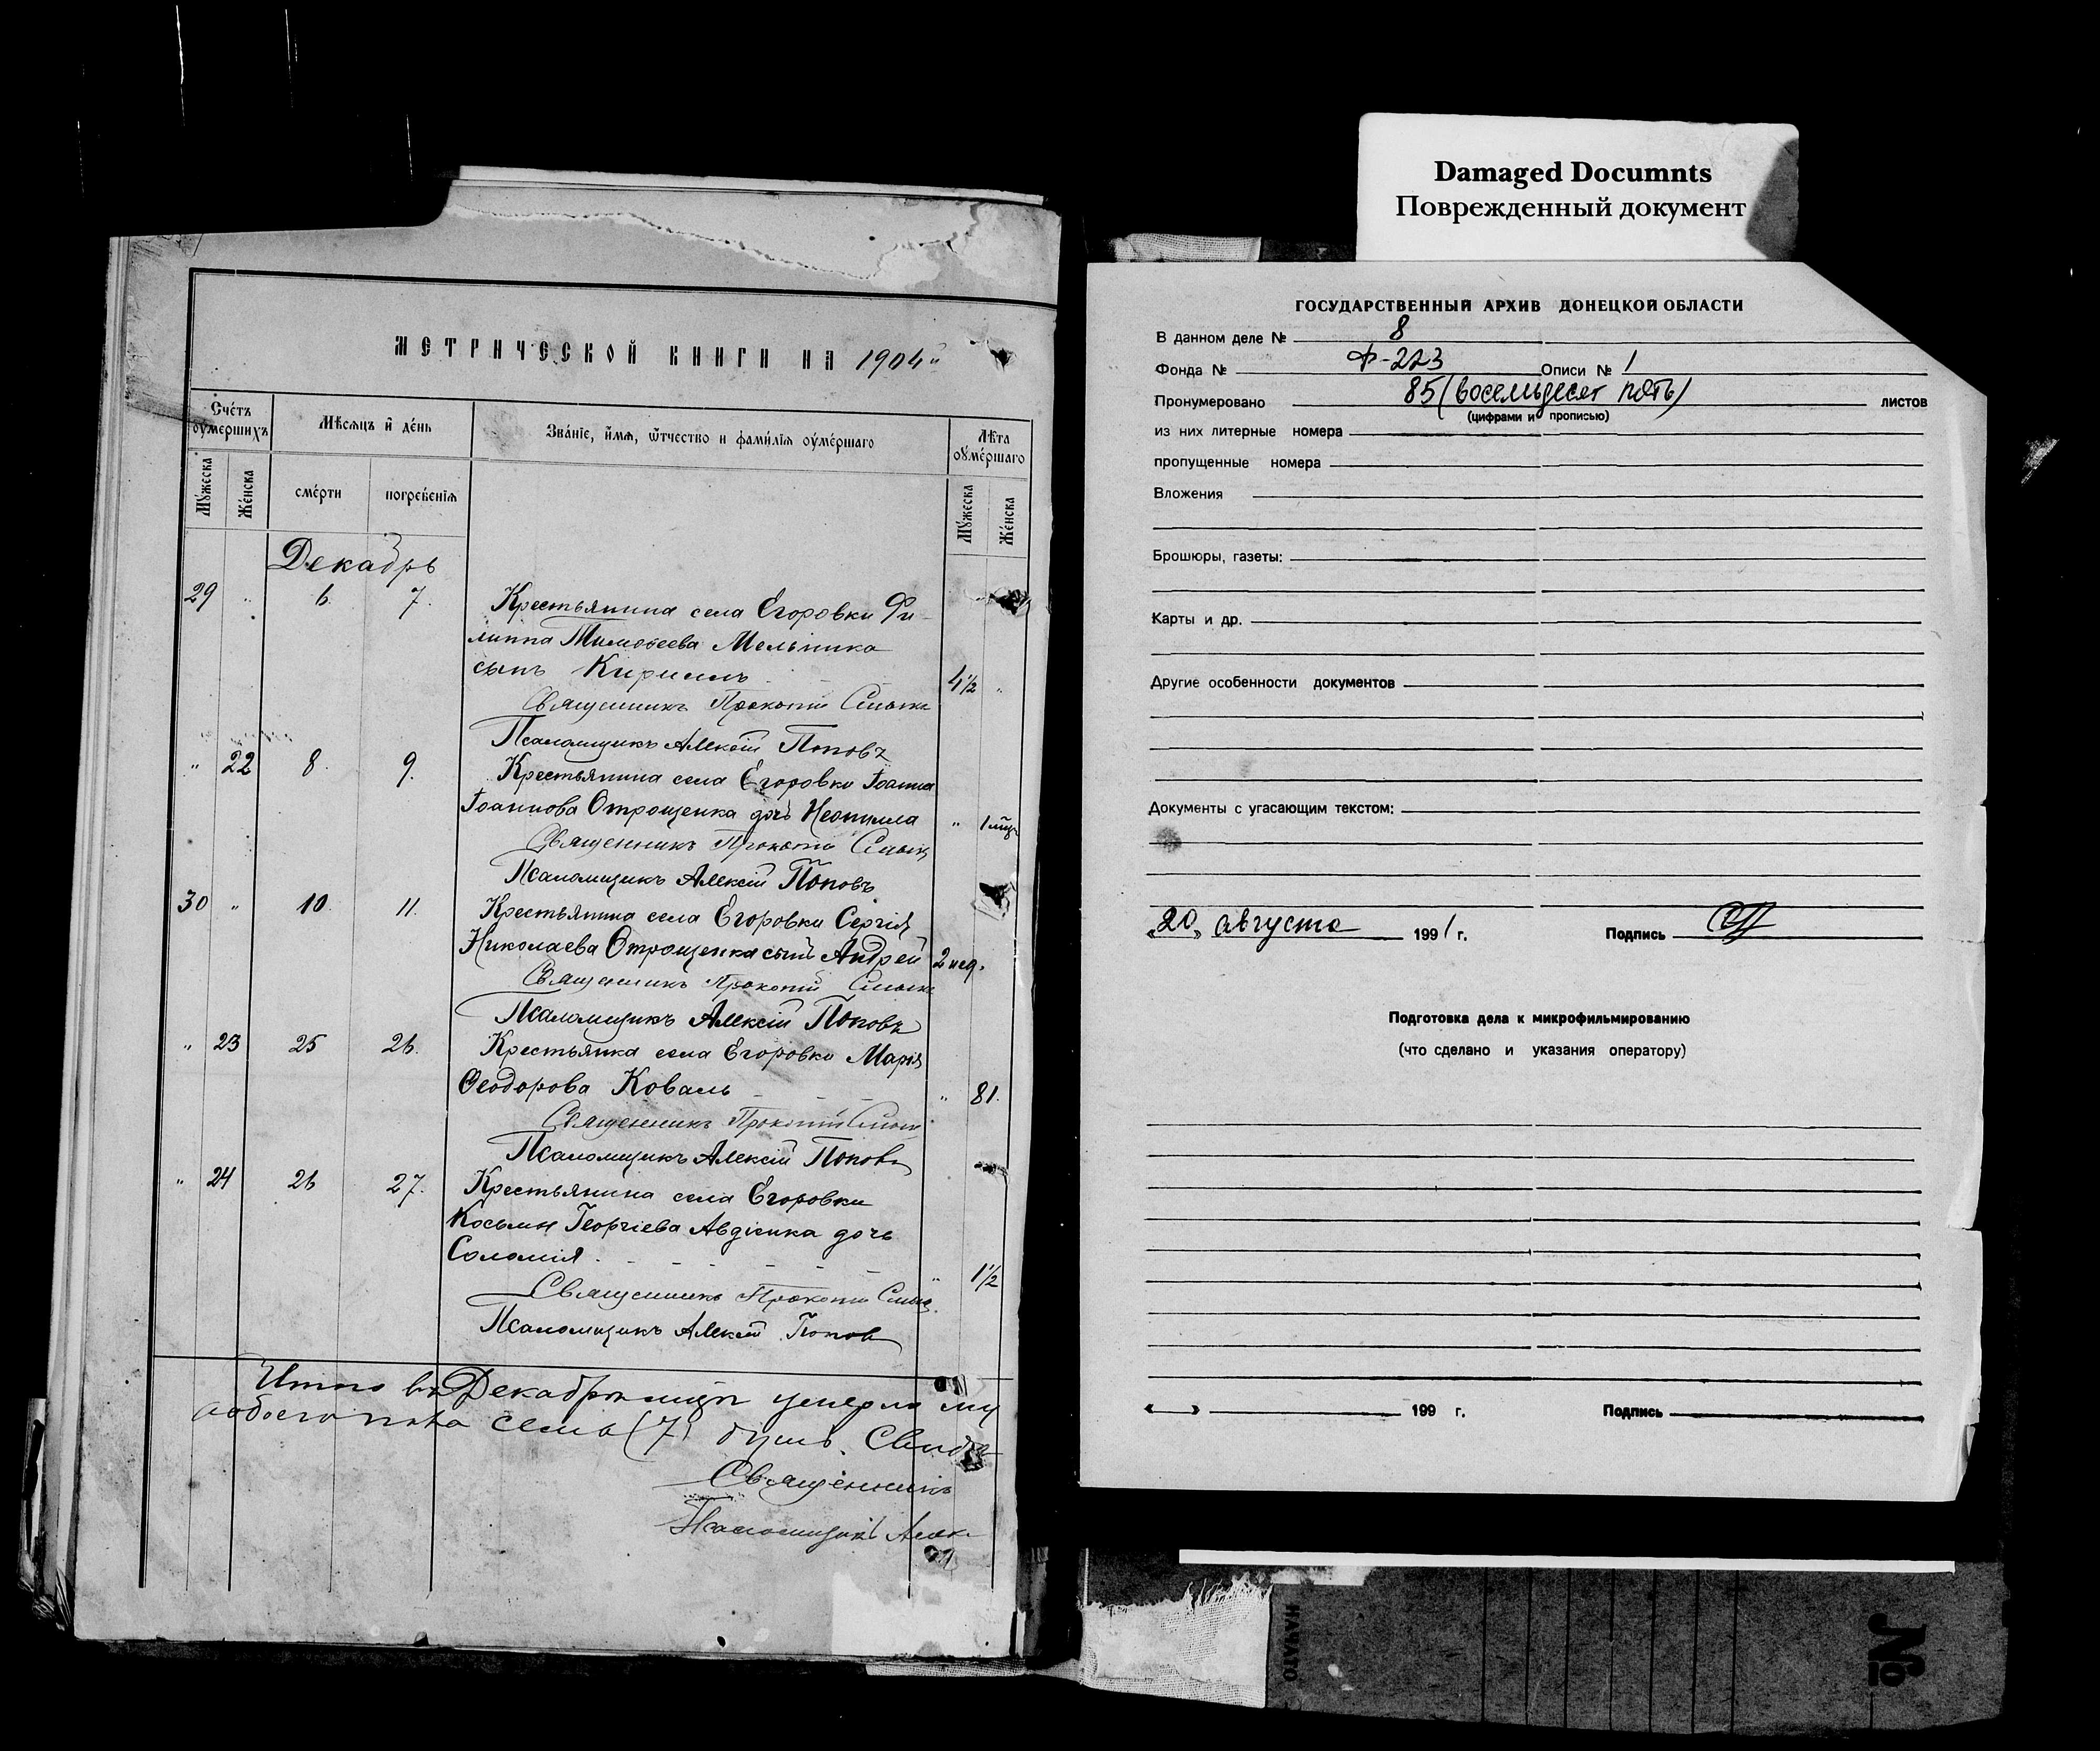 Damaged Documnts
Поврежденный документ
МЕТРИЧЕСКОЙ КНИГИ НА 1904
Счетъ оумершихъ
Мѣсяцъ и день
Званіе, имя, ѿтчество и фамилія оумершаго
Лѣта оумершаго
Мужеска
Женска
смерти
погребенія
Мужеска
Женска
Декабрь
29 " 6. 7. Крестьянина села Егоровки Фи-
липпа Тимоѳеева Мельника
сынъ Кириллъ 4½ "
Священникъ Прокопій
Псаломщикъ Алексій Поповъ
" 22 8. 9. Крестьянина села Егоровки Іоанна
Іоаннова Отрощенка дочь Неонилла " 1 мѣц.
Священникъ Прокопій
Псаломщикъ Алексій Поповъ
30 " 10. 11. Крестьянина села Егоровки Сергія
Николаева Отрощенка сынъ Андрей 2 нед.
Священникъ Прокопій
Псаломщикъ Алексій Поповъ
" 23 25 26. Крестьянка села Егоровки Марія
Ѳеодорова Коваль " 81.
Священникъ Прокопій
Псаломщикъ Алексій Поповъ
" 24 26 27. Крестьянина села Егоровки
Косьмы Георгіева Авдіенка дочь
Соломія " 1½
Священникъ Прокопій
Псаломщикъ Алексій Поповъ
Итого въ Декабрѣ умерло
обоего пола семь (7) душъ.
Священникъ
Псаломщикъ Алек
ГОСУДАРСТВЕННЫЙ АРХИВ ДОНЕЦКОЙ ОБЛАСТИ
В данном деле № 8
Фонда № Ф-223 Описи № 1
Пронумеровано 85 (восемьдесят пять) листов
(цифрами и прописью)
из них литерные номера
пропущенные номера
Вложения
Брошюры, газеты:
Карты и др.
Другие особенности документов
Документы с угасающим текстом:
«20» августа 1991 г. Подпись
Подготовка дела к микрофильмированию
(что сделано и указания оператору)
« » 199 г. Подпись
НАЧАТО
№